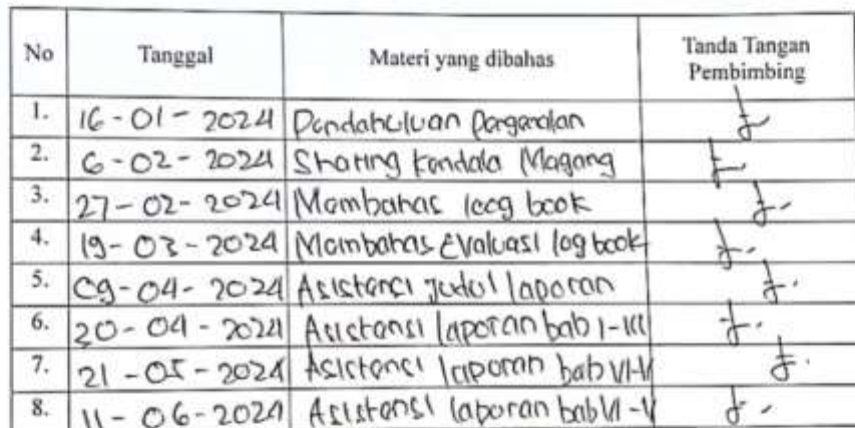 No Tanggal Materi yang dibahas Tanda Tangan Pembimbing
1. 16-01-2024 Pendahuluan Pengenalan
2. 6-02-2024 Sharing kendala Magang
3. 27-02-2024 Membahas loog book
4. 19-03-2024 Membahas Evaluasi log book
5. 09-04-2024 Asistensi Judul laporan
6. 20-04-2024 Asistensi laporan bab I-III
7. 21-05-2024 Asistensi laporan bab VI-V
8. 11-06-2024 Asistensi laporan bab VI-V